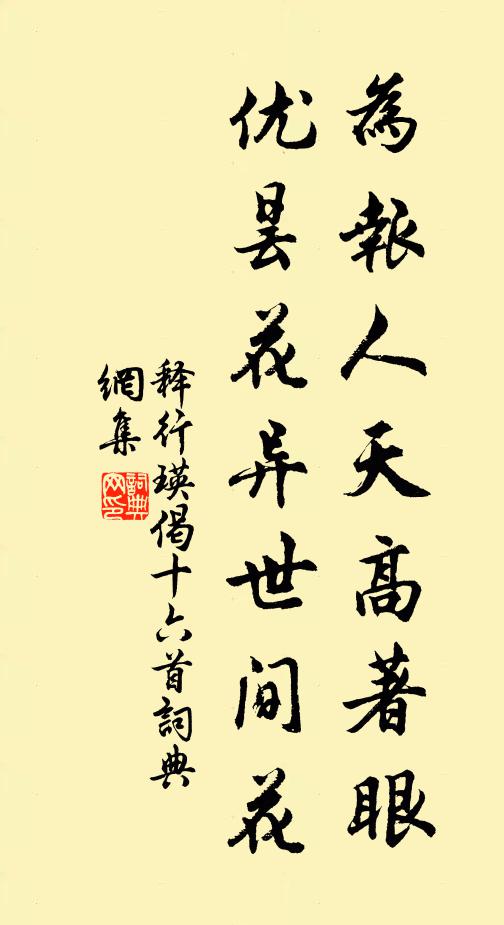 為報人天高著眼
优曇花异世间花
释行瑛偈十六首詞典
網集
詞典
网印